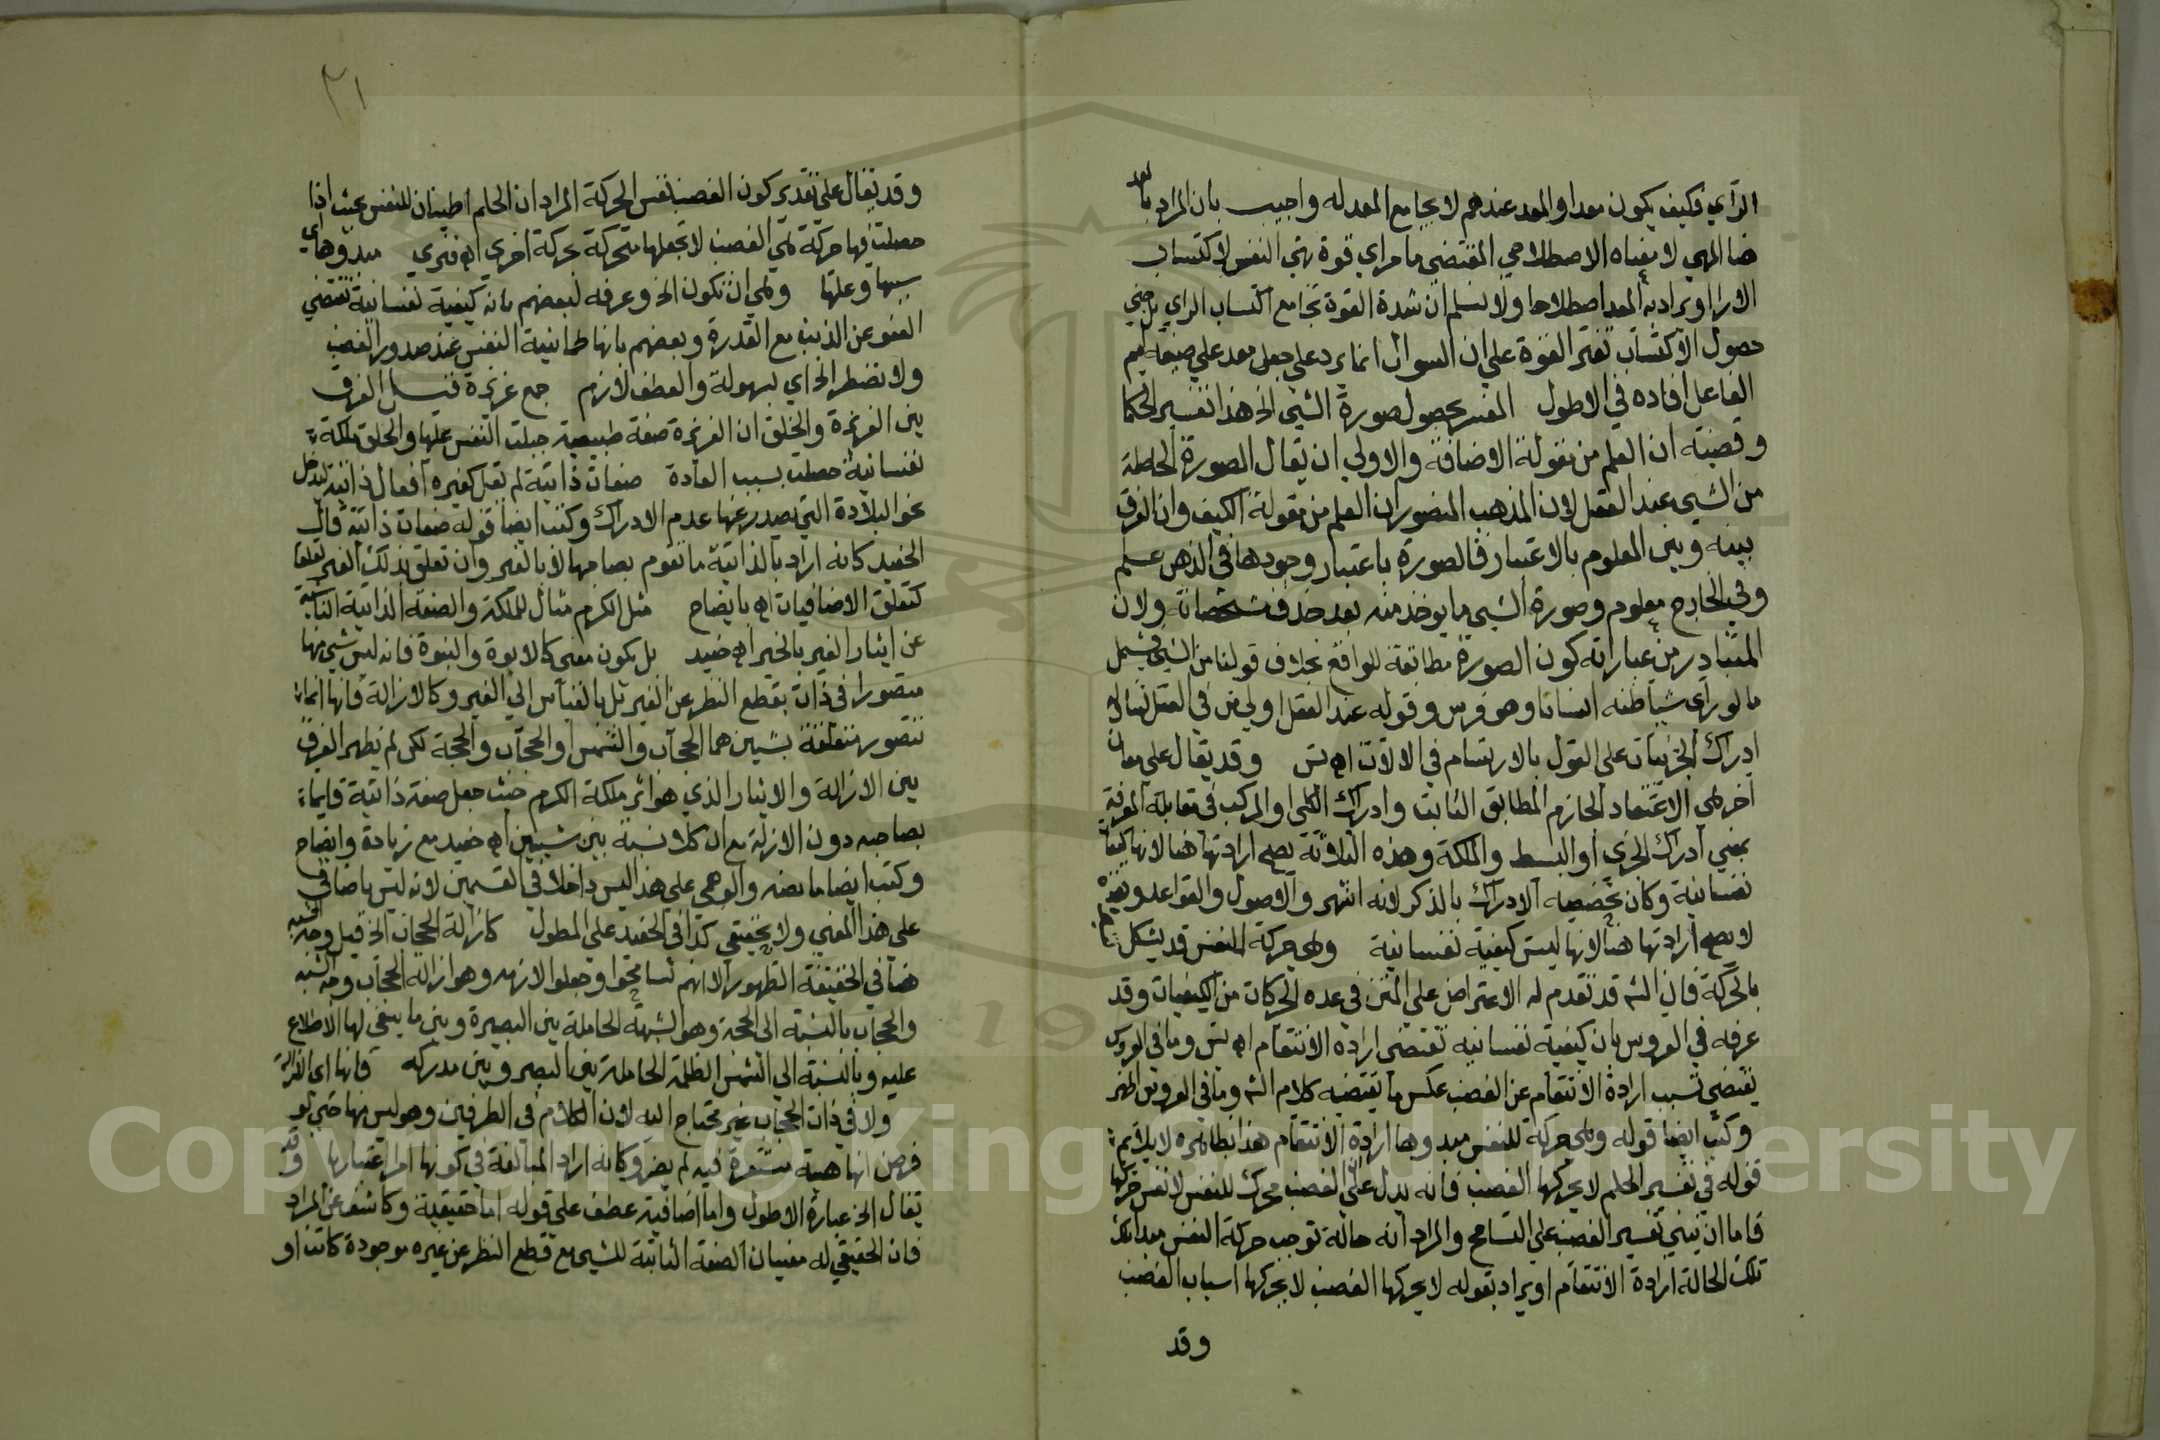 الراي فكيف يكون معدا والمعد عندهم لا يجامع المعد له واجيب بان المراد بالمعد
هنا المهيئ لا معناه الاصطلاحي المقتضي ما مر اي قوة تهيئ النفس لاكتساب
الارا او يراد به المعد اصطلاحا ولا نسلم ان شدة القوة تجامع اكتساب الراي بل حين
حصول الاكتساب تفتر القوة على ان السوال انما يرد على جعل معد على صيغة اسم
الفاعل افاده في الاطول المفسر بحصول صورة الشيئ الخ هذا تفسير الحكما
وقضيته ان العلم من مقولة الاضافة والاولى ان يقال الصورة الحاصلة
من الشيئ عند العقل لان المذهب المنصور ان العلم من مقولة الكيف وان الفرق
بينه وبين المعلوم بالاعتبار فالصورة باعتبار وجودها في الذهن علم
وفي الخارج معلوم وصورة الشيئ ما يوخذ منه بعد حذف مشخصاته ولان
المتبادر من عباراته كون الصورة مطابقة للواقع بخلاف قولنا من الشيئ فيشمل
ما لو راى شيا ظنه انسانا وهو فرس وقوله عند العقل اولى من في العقل لتناوله
ادراك الجزئيات على القول بالارتسام في الالات اه يس وقد يقال على معان
اخر هي الاعتقاد الجازم المطابق الثابت وادراك الكلي او المركب في مقابلة المعرفة
بمعنى ادراك الجزئي او البسيط والملكة وهذه الثلاثة يصح ارادتها هنا لانها كيفيات
نفسانية وكان تخصيصه الادراك بالذكر لانه اشهر والاصول والقواعد
لا يصح ارادتها هنا لانها ليست كيفية نفسانية وهي حركة النفس قد يشكل
بالحركة فان الشه قد تقدم له الاعتراض على المتن في عده الحركات من الكيفيات وقد
عرفه في العروس بان كيفية نفسانية تقتضي ارادة الانتقام اه يس وما في العروس
يقتضي تسبب ارادة الانتقام عن الغضب عكس ما يقتضيه كلام الشه وما في العروس اظهر
وكتب ايضا قوله وهي حركة للنفس مبدوها ارادة الانتقام هذا بظاهره لا يلائم
قوله في تفسير الحلم لا يحركها الغضب فانه يدل على الغضب محرك للنفس لا نفس حركتها
فاما ان يبنى تفسير الغضب على التسامح والمراد انه حالة توجب حركة النفس مبدا تلك
تلك الحالة ارادة الانتقام او يراد بقوله لا يحركها الغضب لا يحركها اسباب الغضب
وقد
٣١
وقد يقال على تقدير كون الغضب نفس الحركة المراد ان الحلم اطمينان للنفس بحيث اذا
حصلت فيها حركة هي الغضب لا تجعلها متحركة بحركة اخرى اه فنري مبدوها اي
سببها وعلتها وهي ان تكون الخ وعرفه بعضهم بانه كيفية نفسانية تقتضي
العفو عن الذنب مع القدرة وبعضهم بانها طمانينة النفس عند صدور الغضب
ولا تضطر الخ اي بسهولة والعطف لازم جمع غريزة الفرق
بين الغريزة والخلق ان الغريزة صفة طبيعية جبلت النفس عليها والخلق ملكة
نفسانية حصلت بسبب العادة صفات ذاتية لم تقل كغيره افعال ذاتية ليدخل
نحو البلادة التي يصدر عنها عدم الادراك وكتب ايضا قوله صفات ذاتية قال
الحفيد كانه اراد بالذاتية ما تقوم بصاحبها لا بالغير وان تعلق بذلك الغير تعلقا
كتعلق الاضافيات اه بايضاح مثل الكرم مثال للملكة والصفة الذاتية الناشية
عن ايثار الغير بالخير اه حفيد بل يكون معنى كالابوة والبنوة فانه ليس شيئ منها
متصورا في ذات بقطع النظر عن الغير بل بالقياس الى الغير وكالازالة فانها انما
تتصور متعلقة بشيئين هما الحجاب والشمس او الحجاب والحجة لكن لم يظهر الفرق
بين الازالة والايثار الذي هو اثر ملكة الكرم حيث جعل صفة ذاتية قايما
بصاحبه دون الازالة مع ان كلا نسبة بين شيئين اه حفيد مع زيادة وايضاح
وكتب ايضا ما نصه والوهمي على هذا ليس داخلا في القسمين لانه ليس باضافي
على هذا المعنى ولا بحقيقي كذا في الحفيد على المطول كازالة الحجاب الخ قيل وجه الشبه
هنا في الحقيقة الظهور الا انهم تسامحوا وجعلوا لازمه وهو ازالة الحجاب وجه الشبه
والحجاب بالنسبة الى الحجة وهو الشبهة الحاصلة بين البصيرة وبين ما ينبغي لها الاطلاع
عليه وبالنسبة الى الشمس الظلمة الحاصلة بين البصر وبين مدركه فانها اي الازالة
ولا في ذات الحجاب غير محتاج اليه لان الكلام في الطرفين وهو ليس منها حتى لو
فرض انها هيئة متقررة فيه لم يضر وكانه اراد المبالغة في كونها امرا اعتباريا وقد
يقال الخ عبارة الاطول واما اضافية عطف على قوله اما حقيقية وكاشف عن المراد
فان الحقيقي له معنيان الصفة الثابتة للشيئ مع قطع النظر عن غيره موجودة كانت او